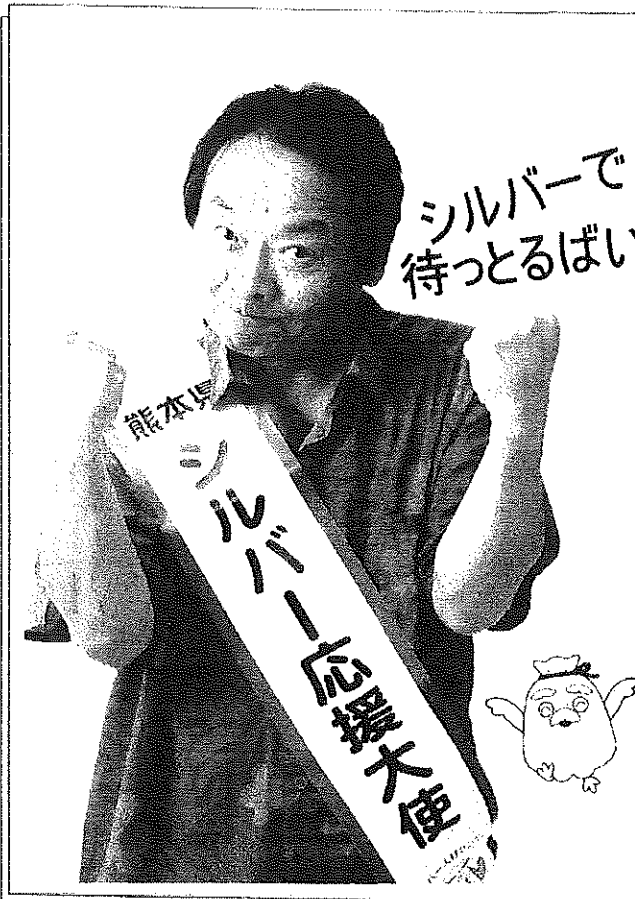 シルバーで
待っとるばい
熊本県
シルバー応援大使